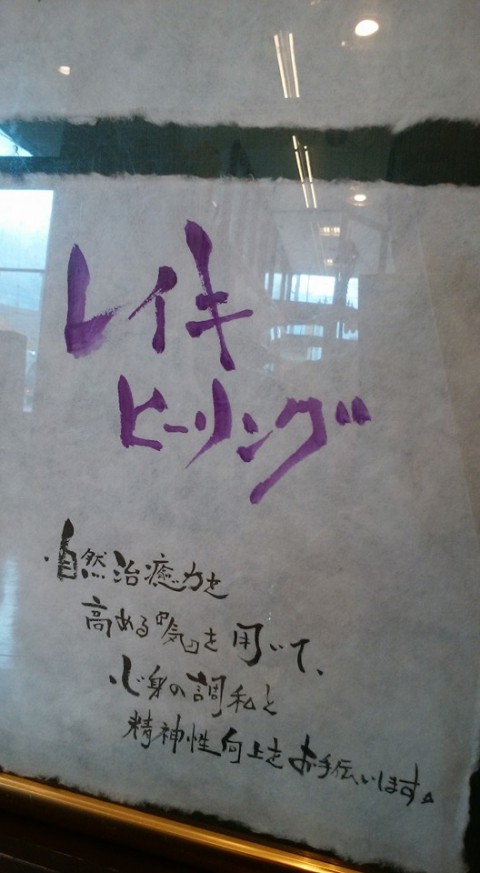 レイキ
ヒーリング
自然治癒力を
高める『気』を用いて、
心身の調和と
精神性向上をお手伝いします。